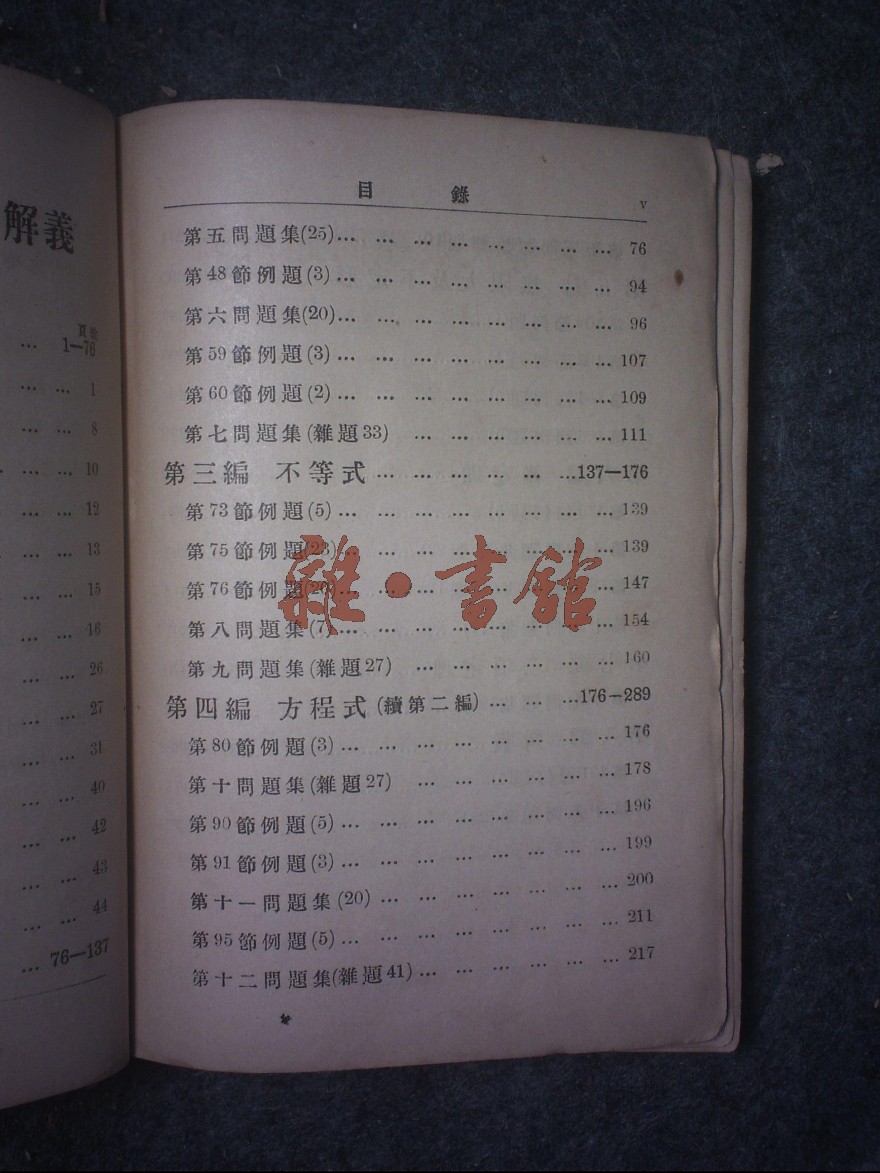 解義
頁數
… 1—76
… … 1
… … 8
… 10
… … 12
… … 13
… … 15
… … 16
… … 26
… … 27
… … 31
… … 40
… … 42
… … 43
… … 44
… 76—137
目 錄 v
第五問題集(25)… … … … … … … … 76
第48節例題(3)… … … … … … … … 94
第六問題集(20)… … … … … … … … 96
第59節例題(3)… … … … … … … … 107
第60節例題(2)… … … … … … … … 109
第七問題集(雜題33) … … … … … … 111
第三編 不等式… … … … … …137—176
第73節例題(5)… … … … … … … … 139
第75節例題(23)… … … … … … … … 139
第76節例題(20)… … … … … … … … 147
第八問題集(7)… … … … … … … … 154
第九問題集(雜題27) … … … … … … 160
第四編 方程式(續第二編)… … …176—289
第80節例題(3)… … … … … … … … 176
第十問題集(雜題27) … … … … … … 178
第90節例題(5)… … … … … … … … 196
第91節例題(3)… … … … … … … … 199
第十一問題集(20)… … … … … … … 200
第95節例題(5)… … … … … … … … 211
第十二問題集(雜題41)… … … … … … 217
雜·書館